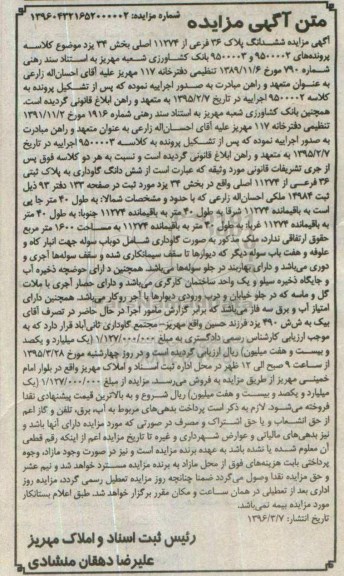 شماره مزایده: ۱۳۹۶۰۴۳۲۱۶۵۲۰۰۰۰۰۲
متن آگهی مزایده
آگهی مزایده ششدانگ پلاک ۳۶ فرعی از ۱۱۲۷۴ اصلی بخش ۳۴ یزد موضوع کلاسه
پرونده‌های ۹۵۰۰۰۰۲ و ۹۵۰۰۰۰۳ بانک کشاورزی شعبه مهریز به استناد سند رهنی
شماره ۷۹۰ مورخ ۱۳۸۹/۱۱/۶ تنظیمی دفترخانه ۱۱۷ مهریز علیه آقای احسان‌اله زارعی
به عنوان متعهد و راهن مبادرت به صدور اجراییه نموده که پس از تشکیل پرونده به
کلاسه ۹۵۰۰۰۰۲ اجراییه در تاریخ ۱۳۹۵/۲/۷ به متعهد و راهن ابلاغ قانونی گردیده است.
همچنین بانک کشاورزی شعبه مهریز به استناد سند رهنی شماره ۱۹۱۶ مورخ ۱۳۹۱/۱۱/۲
تنظیمی دفترخانه ۱۱۷ مهریز علیه آقای احسان‌اله زارعی به عنوان متعهد و راهن مبادرت
به صدور اجراییه نموده که پس از تشکیل پرونده به کلاسه ۹۵۰۰۰۰۳ اجراییه در تاریخ
۱۳۹۵/۲/۷ به متعهد و راهن ابلاغ قانونی گردیده است و نسبت به هر دو کلاسه فوق پس
از جری تشریفات قانونی مورد وثیقه که عبارت است از شش دانگ گاوداری به پلاک ثبتی
۳۶ فرعی از ۱۱۲۷۴ اصلی واقع در بخش ۳۴ یزد مورد ثبت در صفحه ۱۳۳ دفتر ۹۳ ذیل
ثبت ۱۴۹۸۴ ملکی احسان‌اله زارعی که با حدود و مشخصات شمالا: به طول ۴۰ متر جا پی
است به باقیمانده ۱۱۲۷۴ شرقا به طول ۴۰ متر به باقیمانده ۱۱۲۷۴ جنوبا: به طول ۴۰ متر
به باقیمانده ۱۱۲۷۴ غربا: به طول ۴۰ متر به باقیمانده ۱۱۲۷۴ به مساحت ۱۶۰۰ متر مربع
حقوق ارتفاقی ندارد. ملک مذکور به صورت گاوداری شامل دوباب سوله جهت انبار کاه و
علوفه و هفت باب سوله دیگر که دیوارها تا سقف سیمانکاری شده و سقف سوله‌ها آجری و
دوری می‌باشد و دارای بهاربند در جلو سوله‌ها می‌باشد. همچنین دارای حوضچه ذخیره آب
و جایگاه ذخیره سیلو و یک واحد ساختمان کارگری می‌باشد و دارای حصار آجری با ملات
گل و ماسه که در جلو خیابان و درب ورودی دیوارها با آجر روکار می‌باشد. همچنین دارای
امتیاز آب و برق سه فاز می‌باشد که برابر گزارش مامور اجرا در حال حاضر در تصرف آقای
بیک به ش‌ش ۴۹۰ یزد فرزند حسین واقع مهریز-مجتمع گاوداری ثانی‌آباد قرار دارد که به
موجب ارزیابی کارشناس رسمی دادگستری به مبلغ ۱/۱۲۷/۰۰۰/۰۰۰ (یک میلیارد و یکصد
و بیست و هفت میلیون) ریال ارزیابی گردیده است و در روز چهارشنبه مورخ ۱۳۹۵/۳/۲۸
از ساعت ۹ صبح الی ۱۲ ظهر در محل اداره ثبت اسناد و املاک مهریز واقع در بلوار امام
خمینی مهریز از طریق مزایده به فروش می‌رسد. مزایده از مبلغ ۱/۱۲۷/۰۰۰/۰۰۰ (یک
میلیارد و یکصد و بیست و هفت میلیون) ریال شروع و به بالاترین قیمت پیشنهادی نقدا
فروخته می‌شود. لازم به ذکر است پرداخت بدهی‌های مربوط به آب، برق، تلفن و گاز اعم
از حق انشعاب و یا حق اشتراک و مصرف در صورتی که مورد مزایده دارای آنها باشد و
نیز بدهی‌های مالیاتی و عوارض شهرداری و غیره تا تاریخ مزایده اعم از اینکه رقم قطعی
آن معلوم شده یا نشده باشد به عهده برنده مزایده است و نیز در صورت وجود مازاد، وجوه
پرداختی بابت هزینه‌های فوق از محل مازاد به برنده مزایده مسترد خواهد شد و نیم عشر
و حق مزایده نقدا وصول می‌گردد ضمنا چنانچه روز مزایده تعطیل رسمی گردد، مزایده روز
اداری بعد از تعطیلی در همان ساعت و مکان مقرر برگزار خواهد شد. طبق اعلام بستانکار
مورد مزایده بیمه نمی‌باشد.
تاریخ انتشار: ۱۳۹۶/۳/۷
رئیس ثبت اسناد و املاک مهریز
علیرضا دهقان منشادی